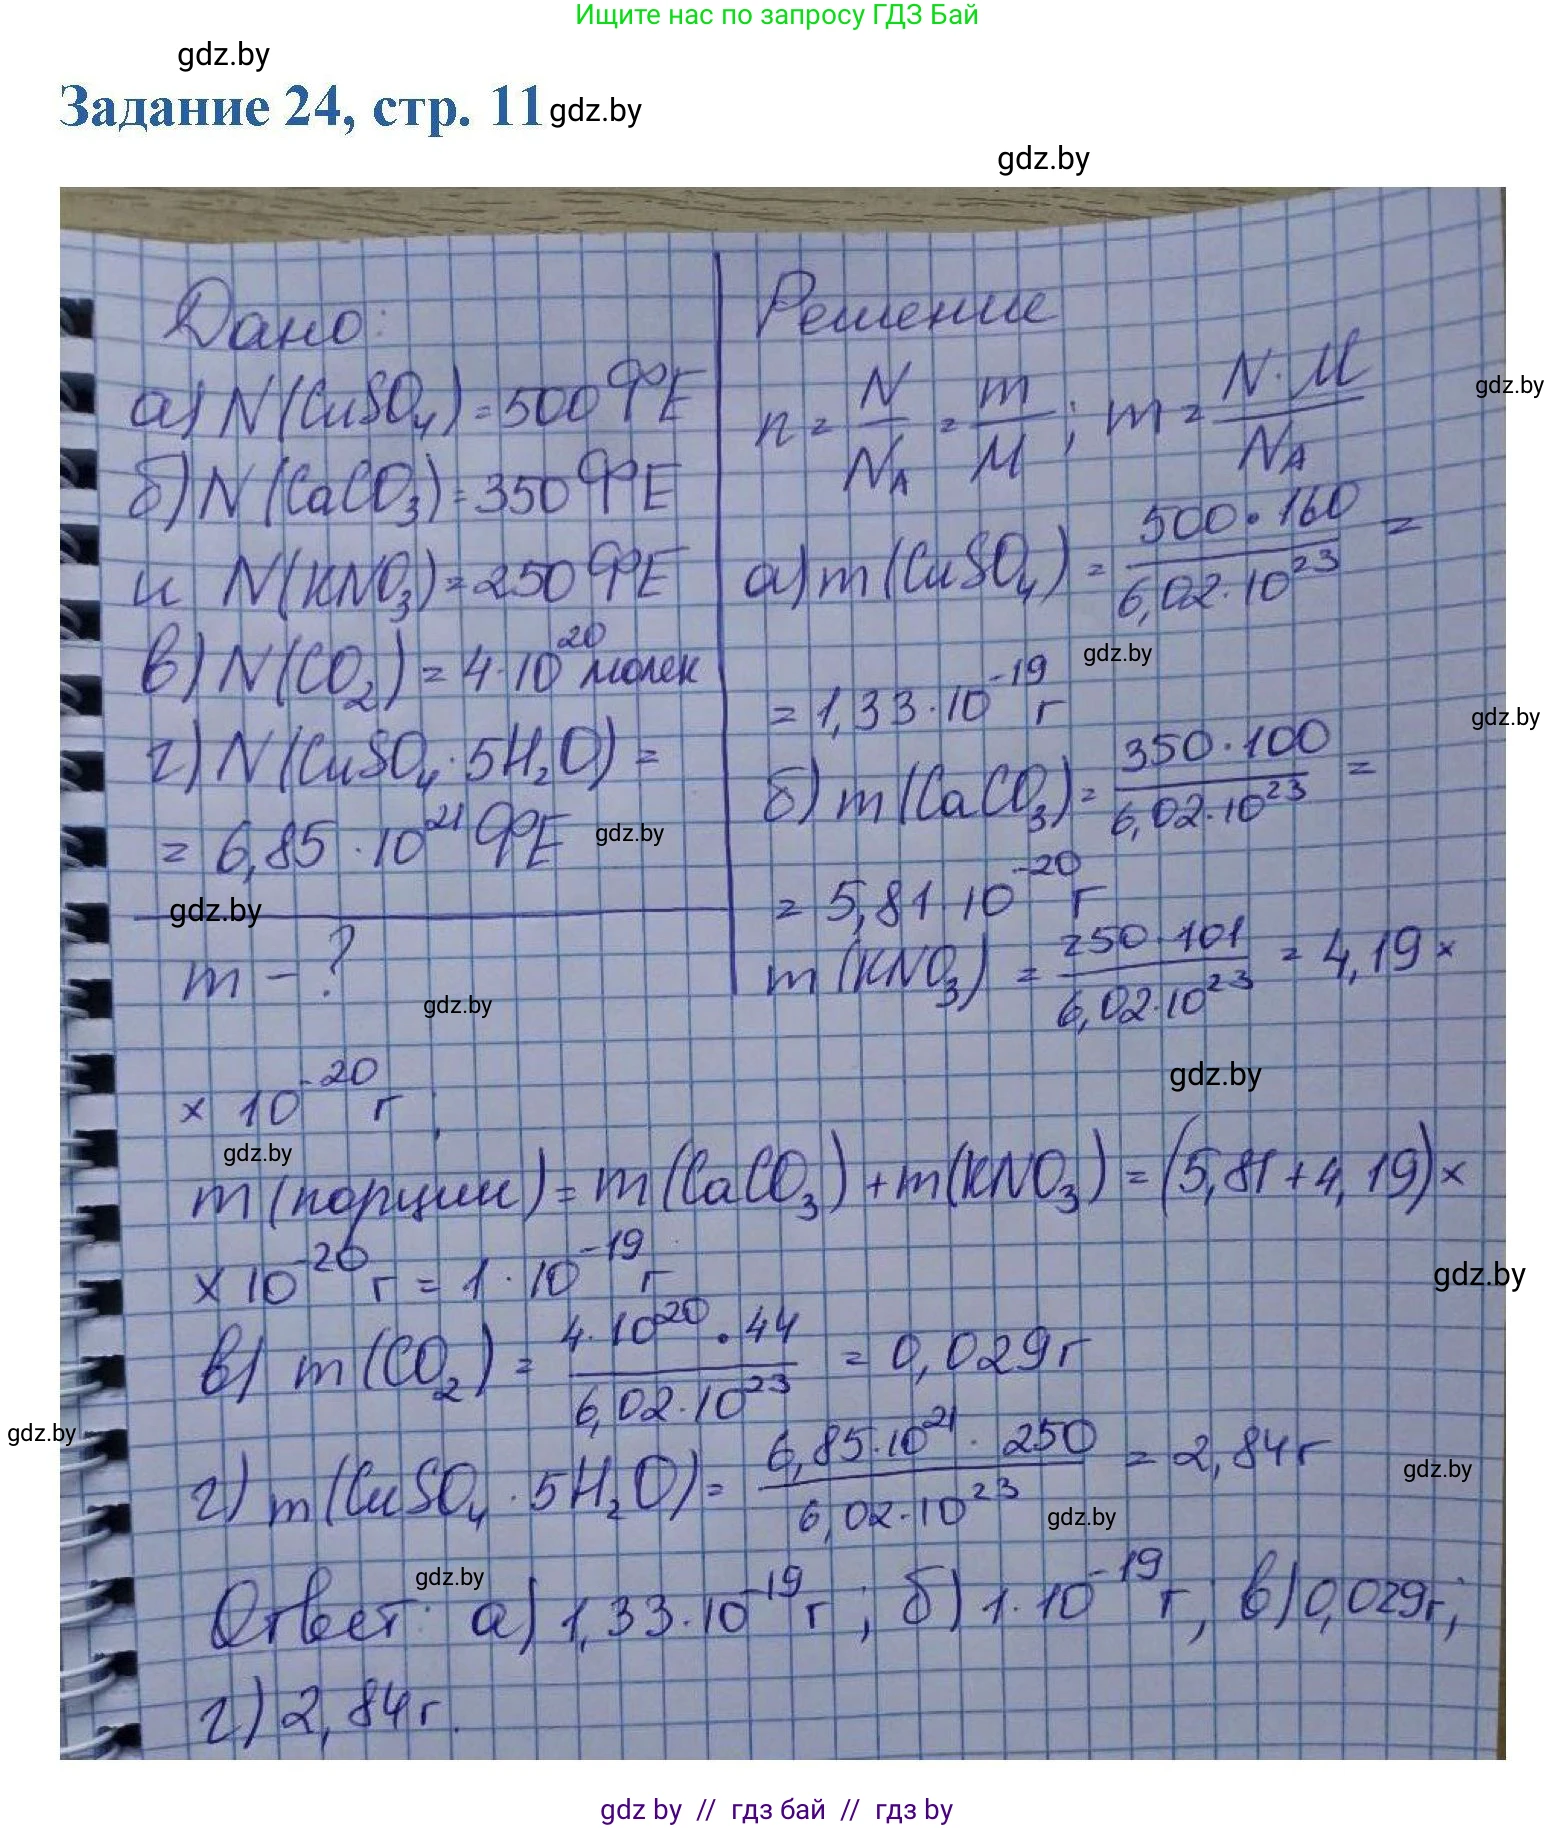 Ищите нас по запросу ГДЗ Бай
gdz.by
Задание 24, стр. 11 gdz.by
gdz.by
Дано:
а) N(CuSO₄) = 500 ФЕ
б) N(CaCO₃) = 350 ФЕ
и N(KNO₃) = 250 ФЕ
в) N(CO₂) = 4·10²⁰ молек
г) N(CuSO₄·5H₂O) =
= 6,85·10²¹ ФЕ gdz.by
gdz.by
m – ?
gdz.by
Решение
n = N/Nₐ = m/M; m = N·M/Nₐ
gdz.by
а) m(CuSO₄) = 500·160/6,02·10²³ =
gdz.by
= 1,33·10⁻¹⁹ г
gdz.by
б) m(CaCO₃) = 350·100/6,02·10²³ =
= 5,81·10⁻²⁰ г
m(KNO₃) = 250·101/6,02·10²³ = 4,19 ×
gdz.by
× 10⁻²⁰ г;
gdz.by
m(порции) = m(CaCO₃) + m(KNO₃) = (5,81+4,19) ×
× 10⁻²⁰ г = 1·10⁻¹⁹ г
gdz.by
в) m(CO₂) = 4·10²⁰·44/6,02·10²³ = 0,029 г
gdz.by
г) m(CuSO₄·5H₂O) = 6,85·10²¹·250/6,02·10²³ = 2,84 г
gdz.by
gdz.by
gdz.by
Ответ: а) 1,33·10⁻¹⁹ г; б) 1·10⁻¹⁹ г; в) 0,029 г;
г) 2,84 г.
gdz by // гдз бай // гдз by